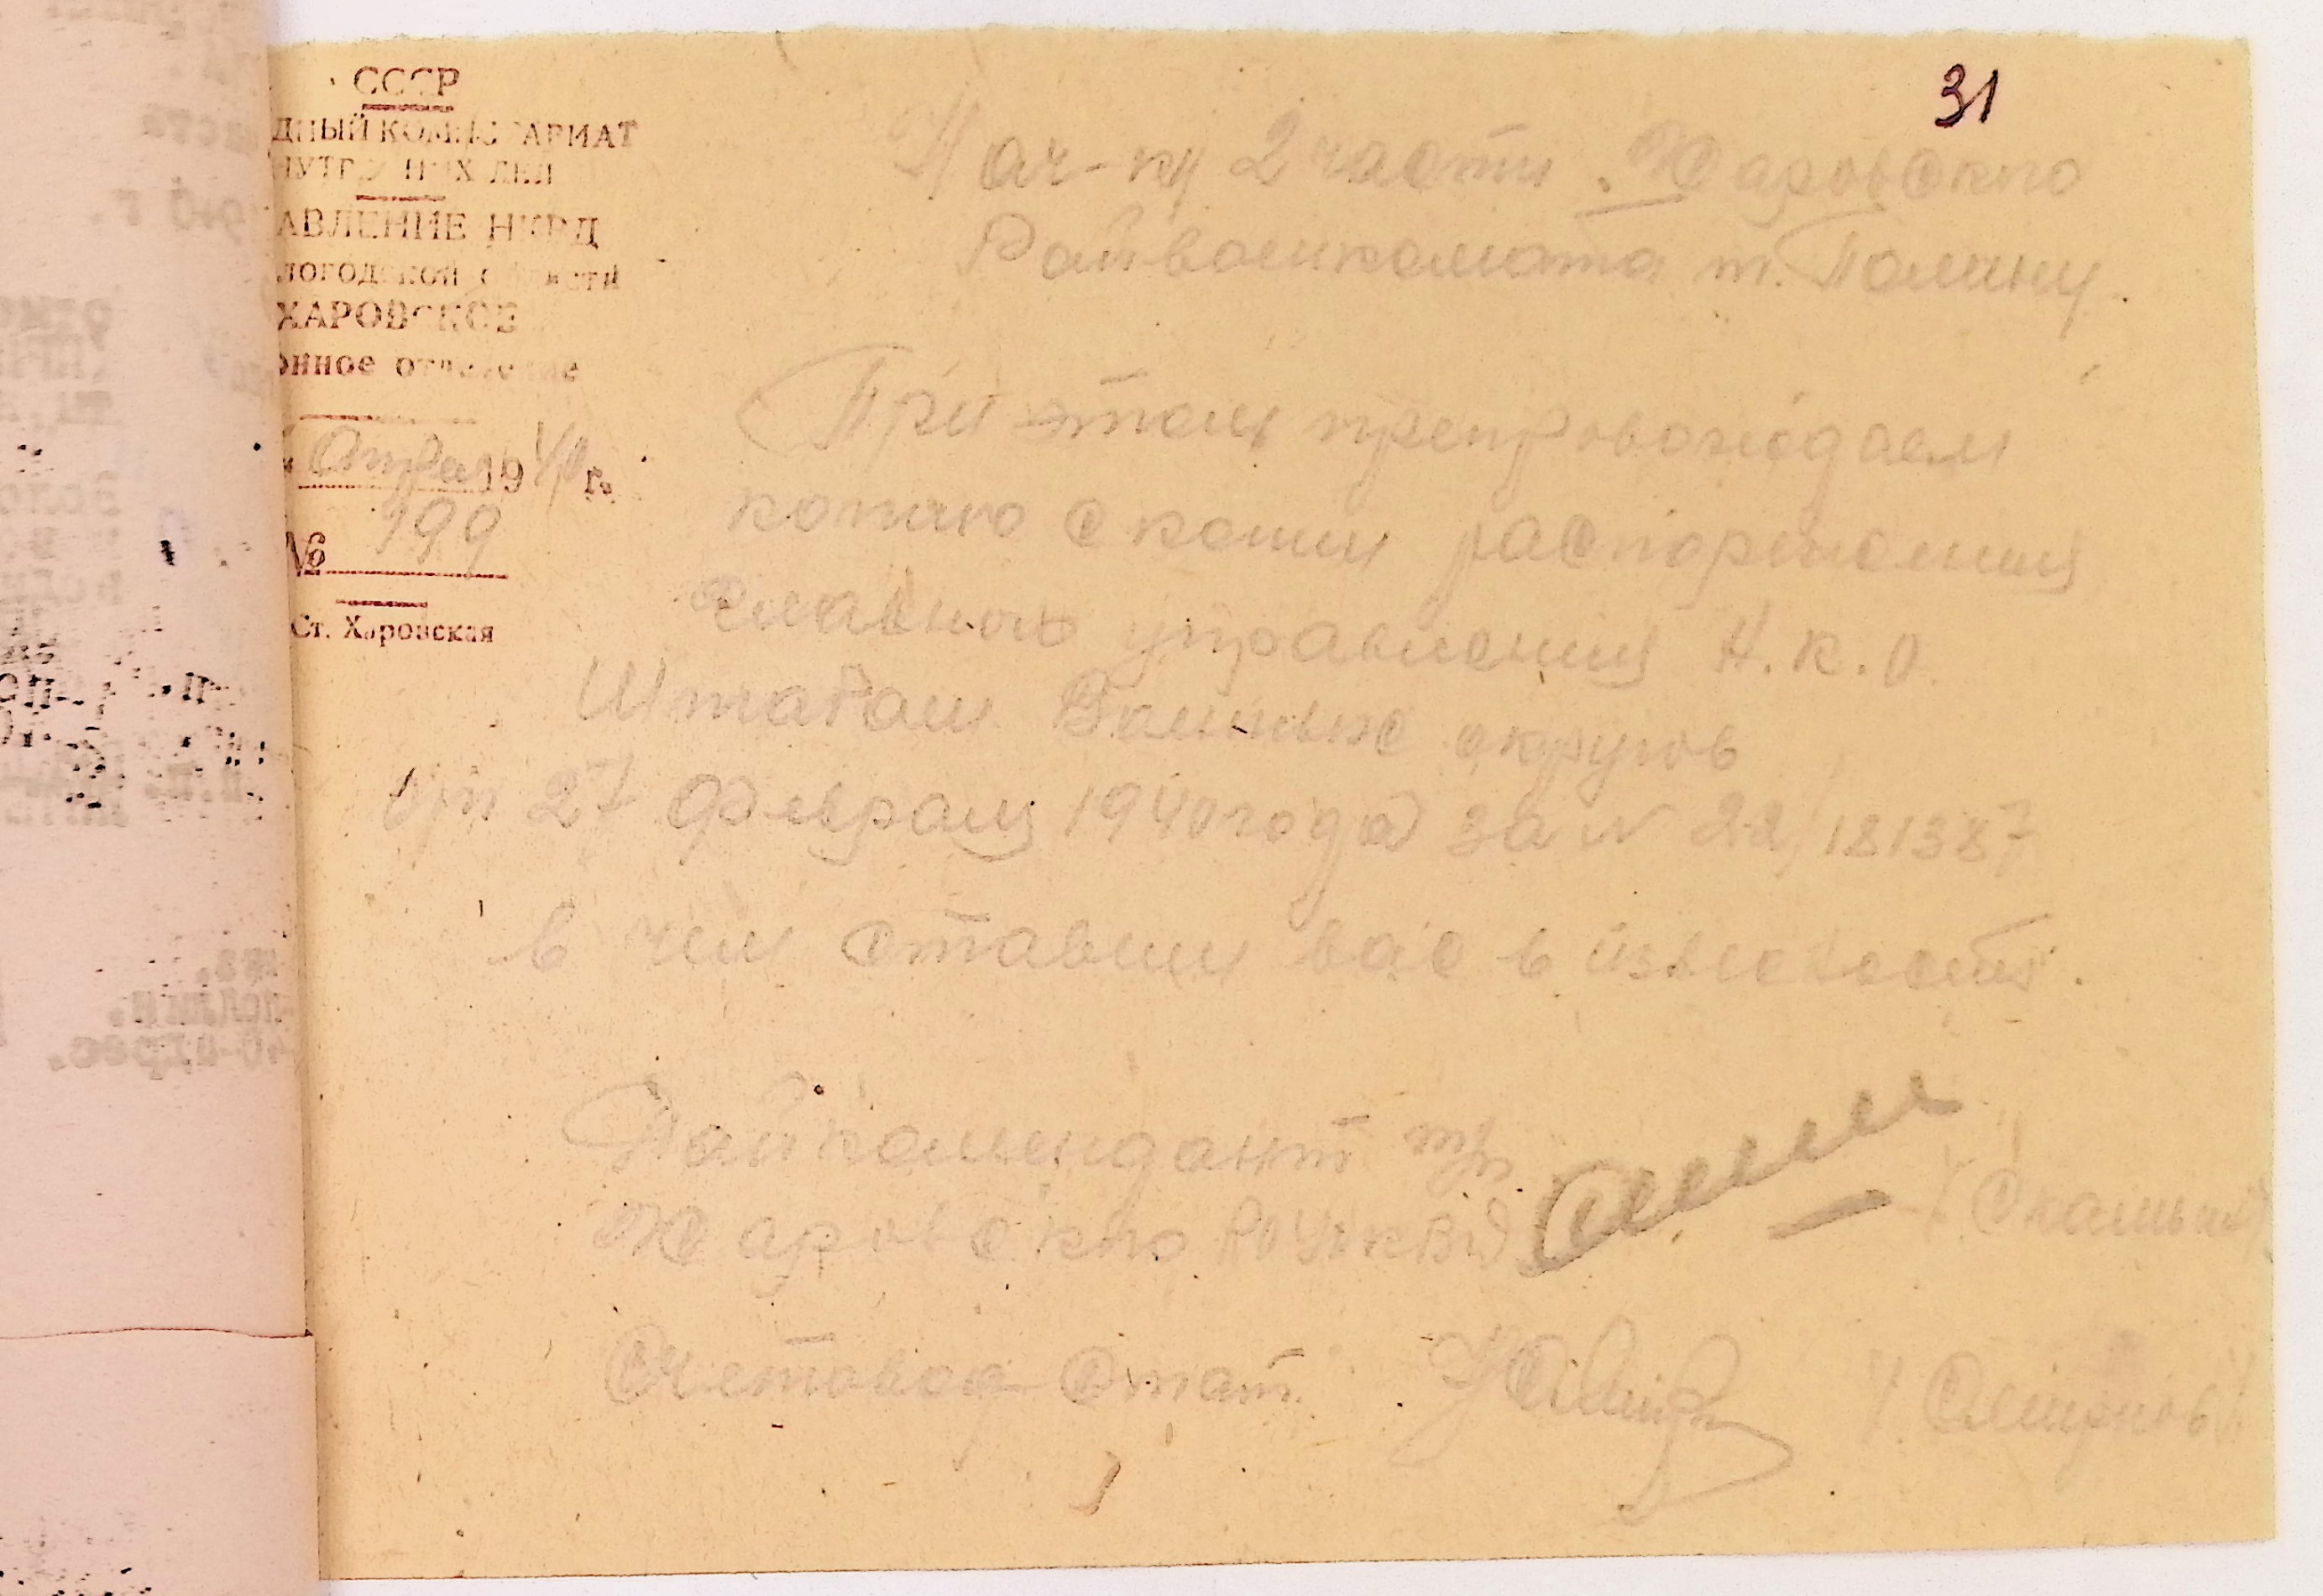 31
СССР
ДНЫЙ КОМИССАРИАТ
НУТРЕННИХ ДЕЛ
АВЛЕНИЕ НКВД
ЛОГОДСКОЙ ОБЛАСТИ
ХАРОВСКОЕ
онное отделение
1940 г.
№ 199
Ст. Харовская
Нач-ку 2 части. Харовского
Райвоенкомата т.
При этом препровождаем
копию с копии распоряжения
Главного управления Н.К.О.
Штабам Военных округов
от 27 февраля 1940 года за № 22/181387
в чем ставим вас в известность.
Райкомендант
Харовского РО УНКВД
Счетовод Стат. / Смирнов /